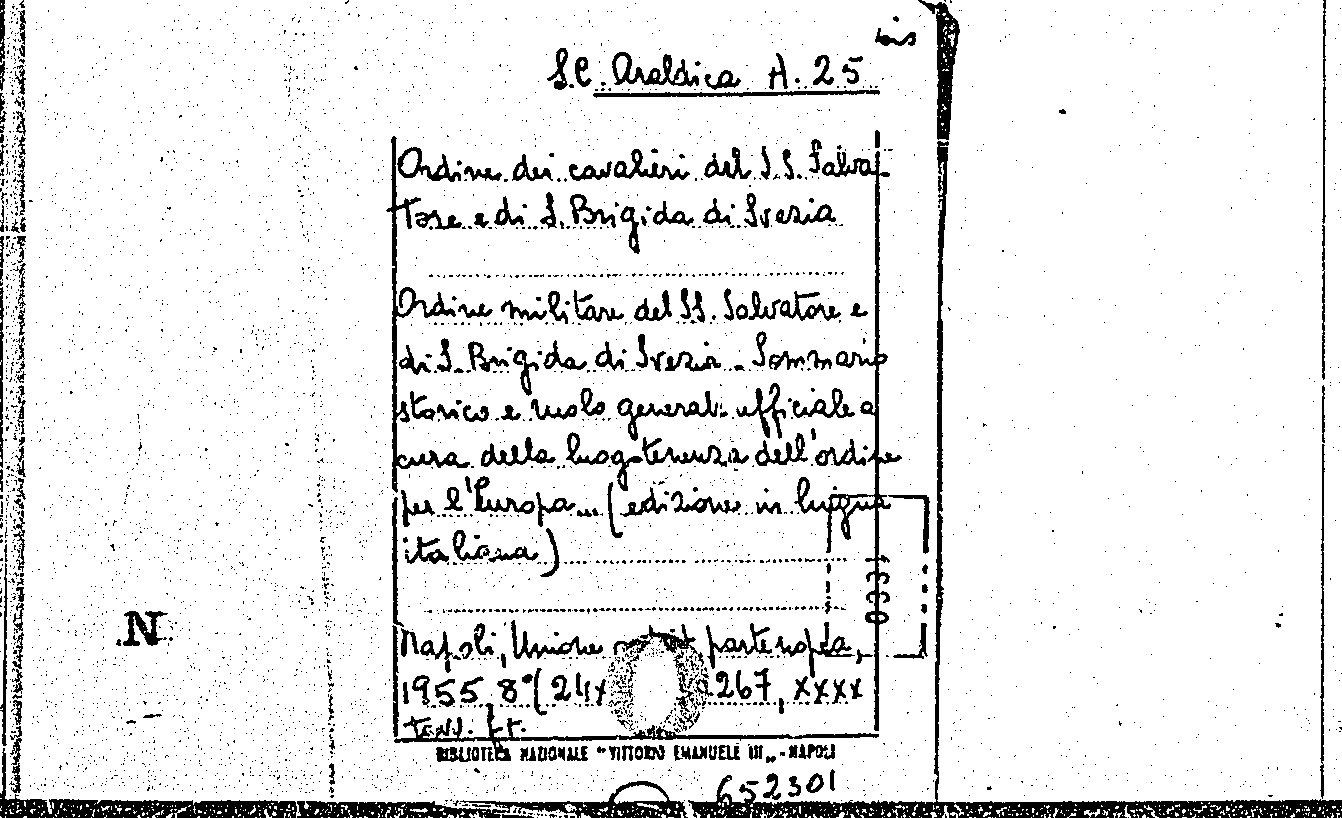 bis
S.C. Araldica A. 25
Ordine dei cavalieri del S.S. Salva-
tore e di S. Brigida di Svezia
Ordine militare del SS. Salvatore e
di S. Brigida di Svezia. Sommario
storico e ruolo generale ufficiale a
cura della luogotenenza dell'ordine
per l'Europa... (edizione in lingua
italiana)
033
N
Napoli, Unione partenopea,
1955 8° (24x 267, XXXX
tav. ft.
BIBLIOTECA NAZIONALE "VITTORIO EMANUELE III„ - NAPOLI
652301